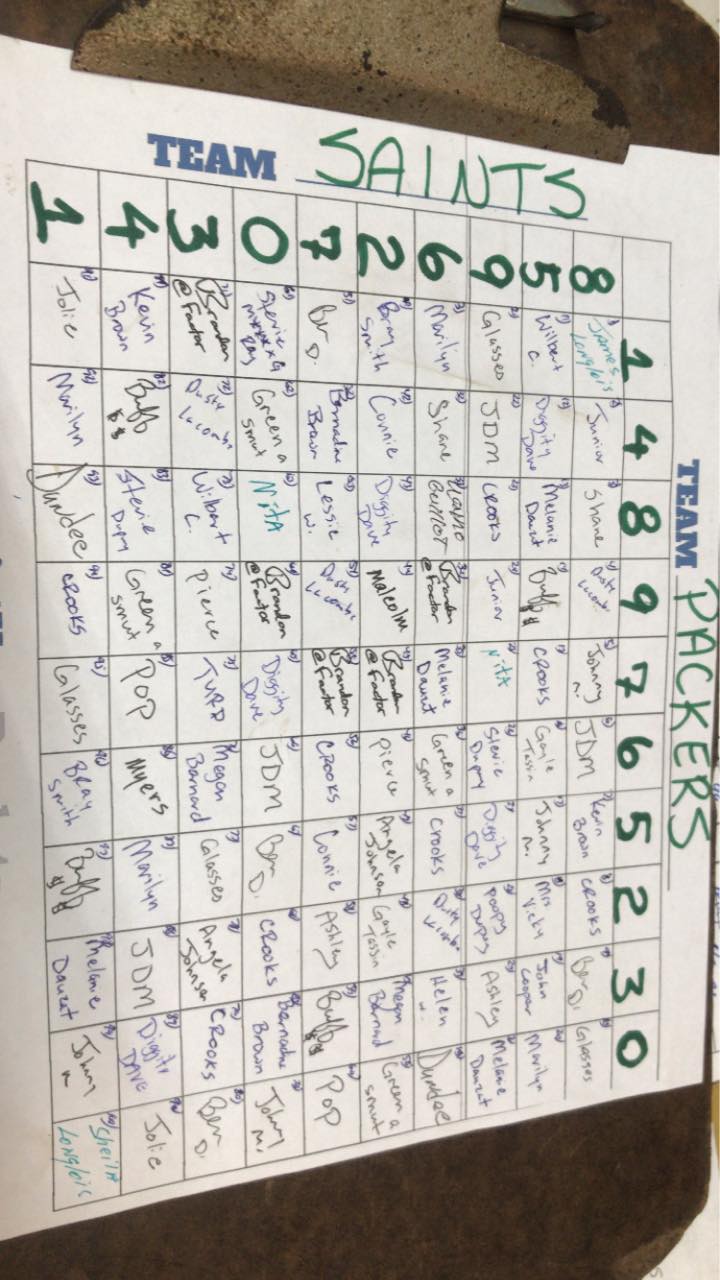 TEAM PACKERS
TEAM SAINTS
1 4 8 9 7 6 5 2 3 0
8 James Longlois Junior Shane Johnny M. JDM Kevin Brown CROOKS Ben D. Glasses
5 Wilbert C. Diggity Dave Melanie Dauzat Buff $$ CROOKS Gayle Tassin Johnny M. Mrs. Vicky John Cooper Marilyn
9 Glasses JDM CROOKS Junior NitA Stevie Dupuy Diggity Dave Poopy Dupuy Ashley Melanie Dauzat
6 Marilyn Shane Guillot Brandon @ Factor Melanie Dauzat Green a smut Crooks Helen W. Dundee
2 Bray Smith Connie Diggity Dave Malcolm Brandon @ Factor Pierce Angela Johnson Gayle Tassin Megan Bernard Green a smut
7 Ben D. Bernadine Brown Lessie W. Brandon @ Factor CROOKS Connie Ashley Buff $$ POP
0 Stevie Ray Green a smut NitA Brandon @ Factor Diggity Dave JDM Ben D. CROOKS Bernadine Brown Johnny M.
3 Brandon @ Factor Wilbert C. Pierce Megan Barnard Glasses Angela Johnson CROOKS Ben D.
4 Kevin Brown Buff $$ Stevie Dupuy Green a smut POP Myers Marilyn JDM Diggity DAVE Jolie
1 Jolie Marilyn Dundee CROOKS Glasses Bray Smith Buff $$ Melanie Dauzat Johnny M Sheila Longlois